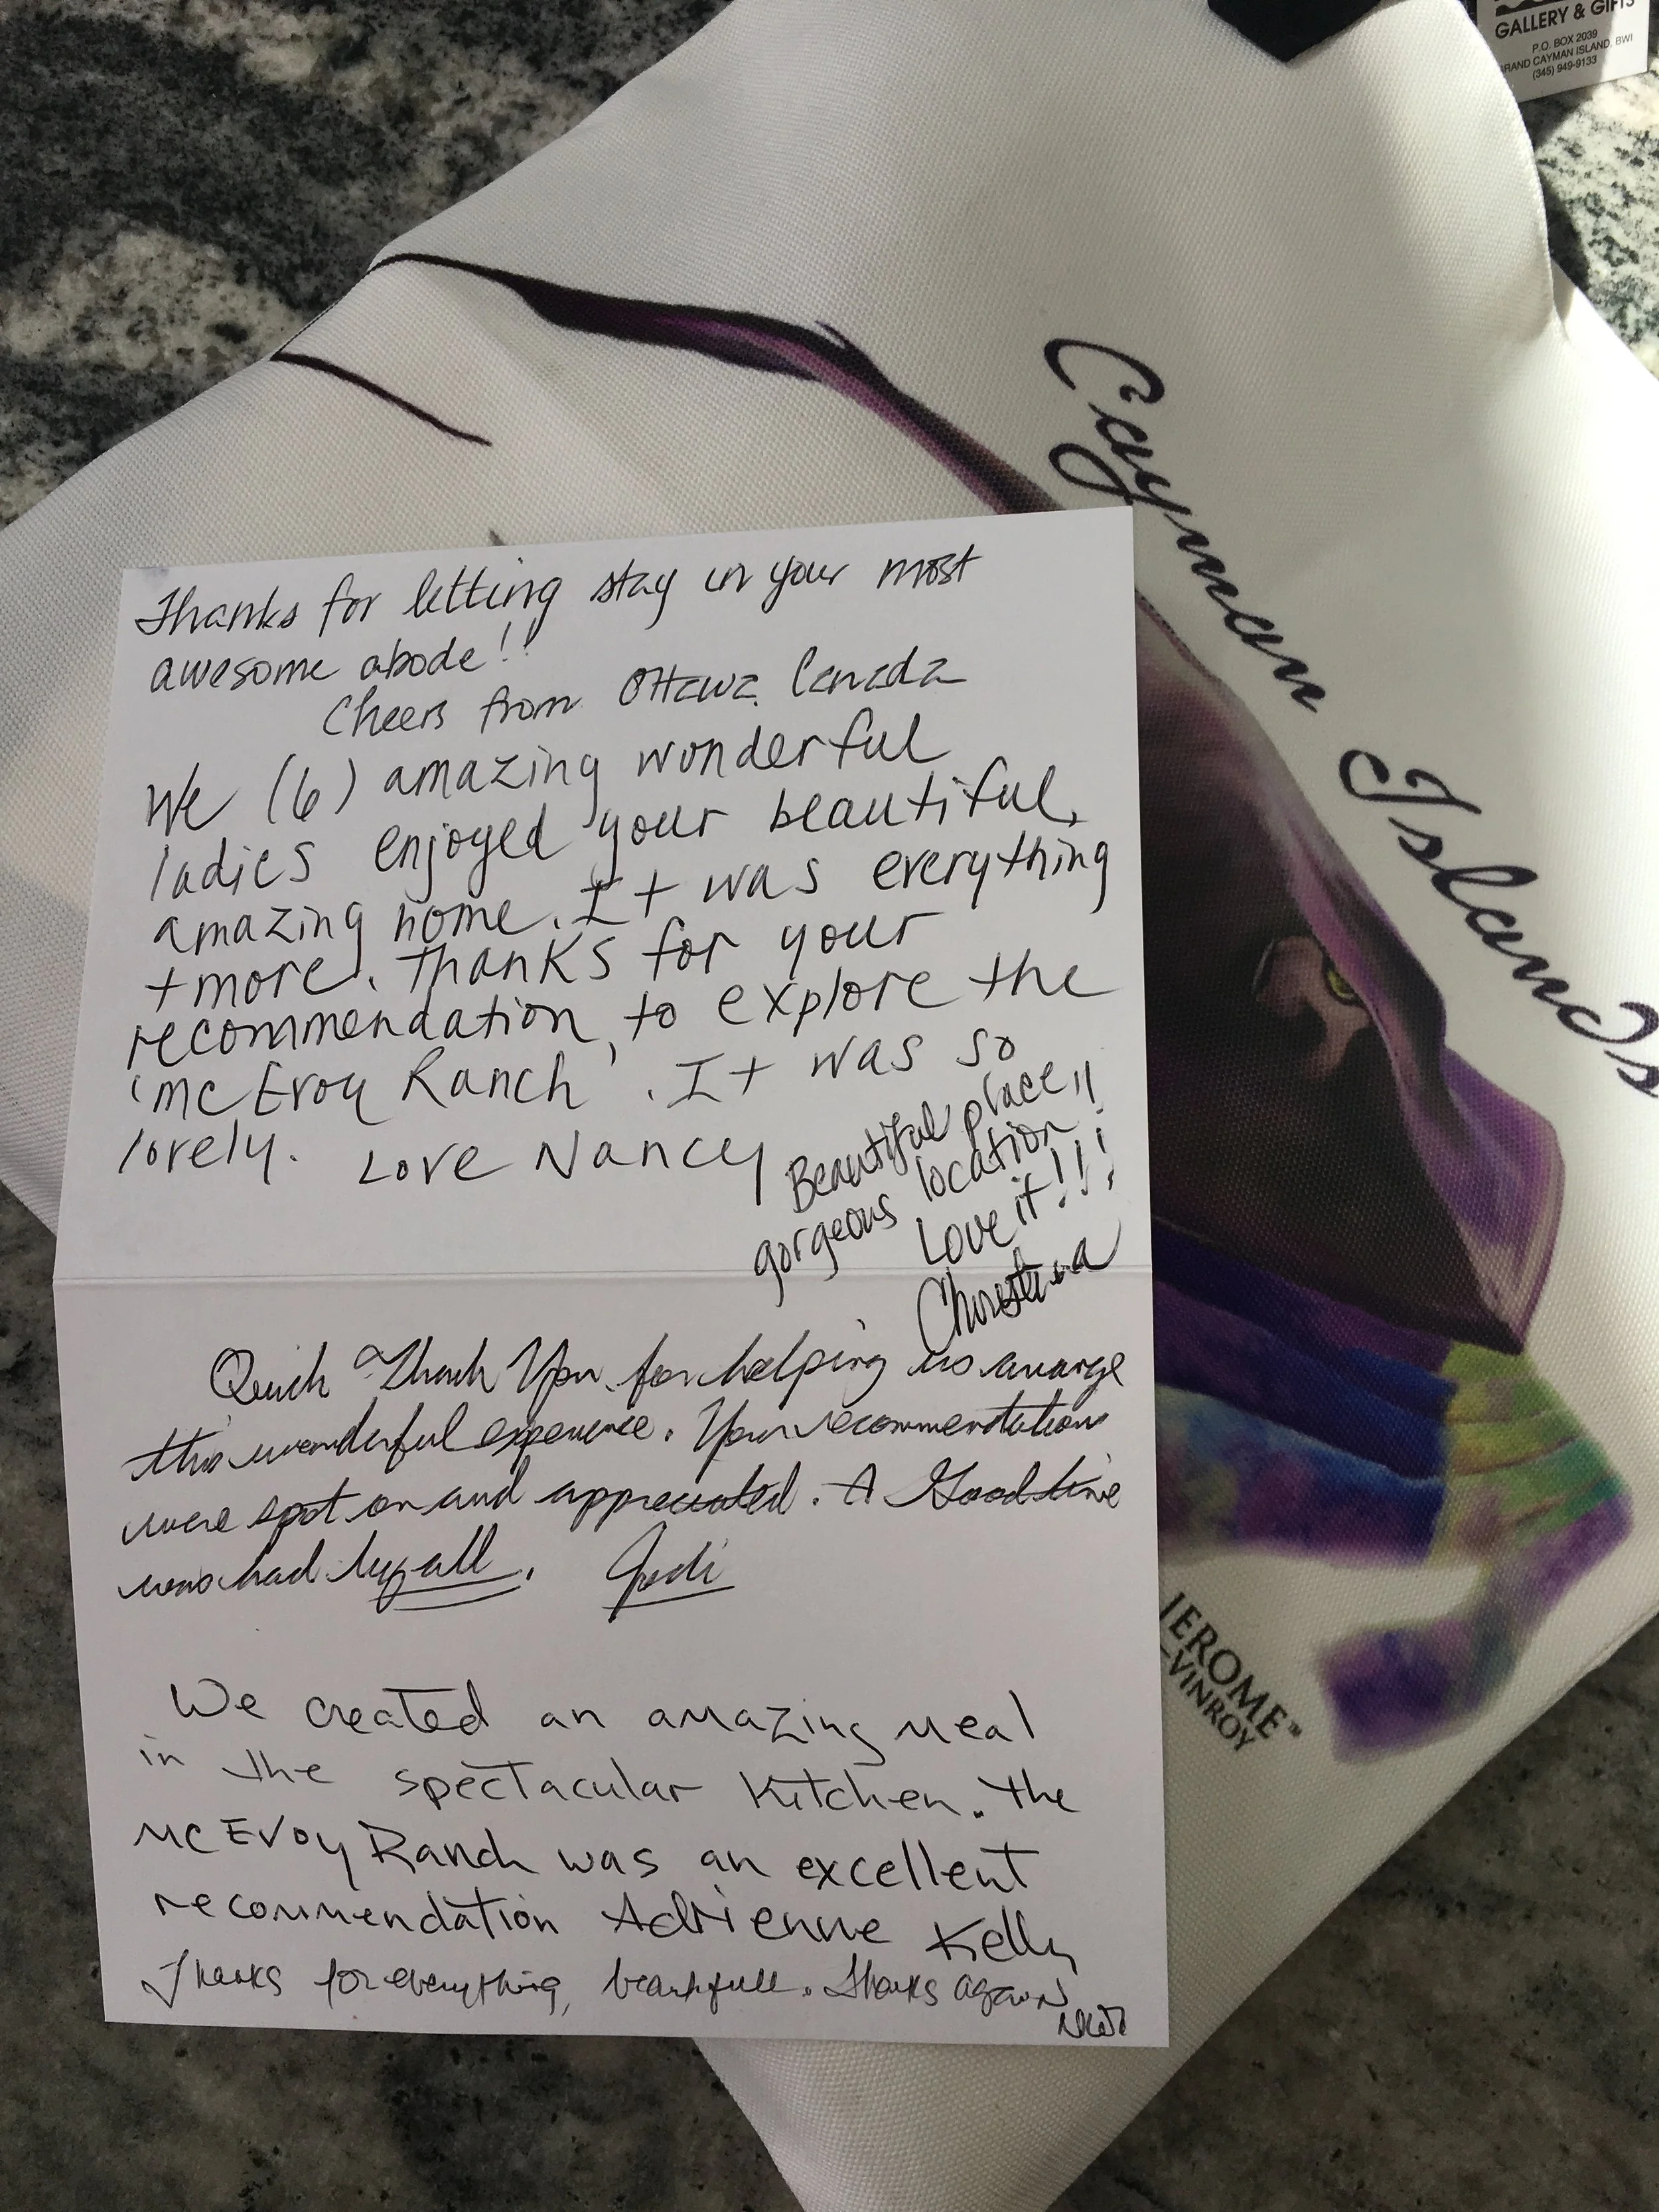 GALLERY & GIFTS
P.O. BOX 2039
GRAND CAYMAN ISLAND, BWI
(345) 949-9133
Cayman Islands
Thanks for letting stay in your most
awesome abode!!
Cheers from Ottawa, Canada
We (6) amazing wonderful
ladies enjoyed your beautiful,
amazing home. It was everything
+more. Thanks for your
recommendation, to explore the
'McEvoy Ranch'. It was so
lovely. Love Nancy
Beautiful place!!
gorgeous location
Love it!!!
Christina
Quick Thank You for helping us arrange
this wonderful experience. Your recommendations
were spot on and appreciated. A Good time
was had by all. Jodi
We created an amazing meal
in the spectacular kitchen. The
McEvoy Ranch was an excellent
recommendation Adrienne Kelly
Thanks for everything, beautifull. Thanks again
JEROME™
VINROY